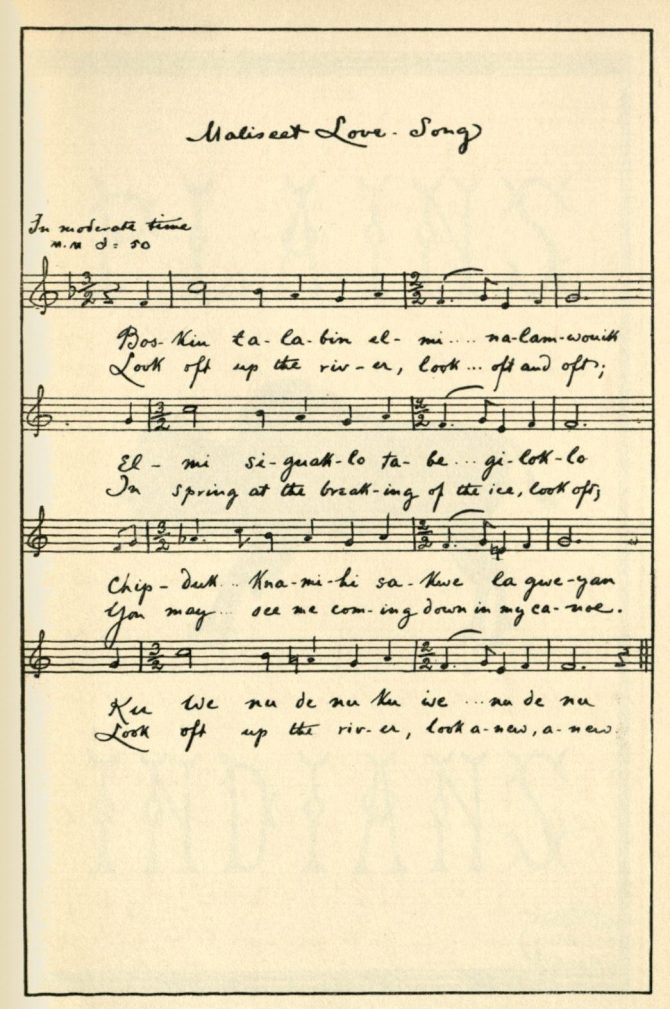 Maliseet Love-Song
In moderate time
M.M. 𝅗𝅥 = 50
Bos-kiu ta-la-bin el-mi.... na-lam-wouik
Look oft up the riv-er, look... oft and oft;
El-mi si-guak-lo ta-be... gi-lok-lo
In spring at the break-ing of the ice, look oft;
Chip-duk.. kna-mi-hi sa-kwe la gwe-yan
You may... see me com-ing down in my ca-noe.
Ku we nu de nu ku we ...nu de nu
Look oft up the riv-er, look a-new, a-new.
INDIANS